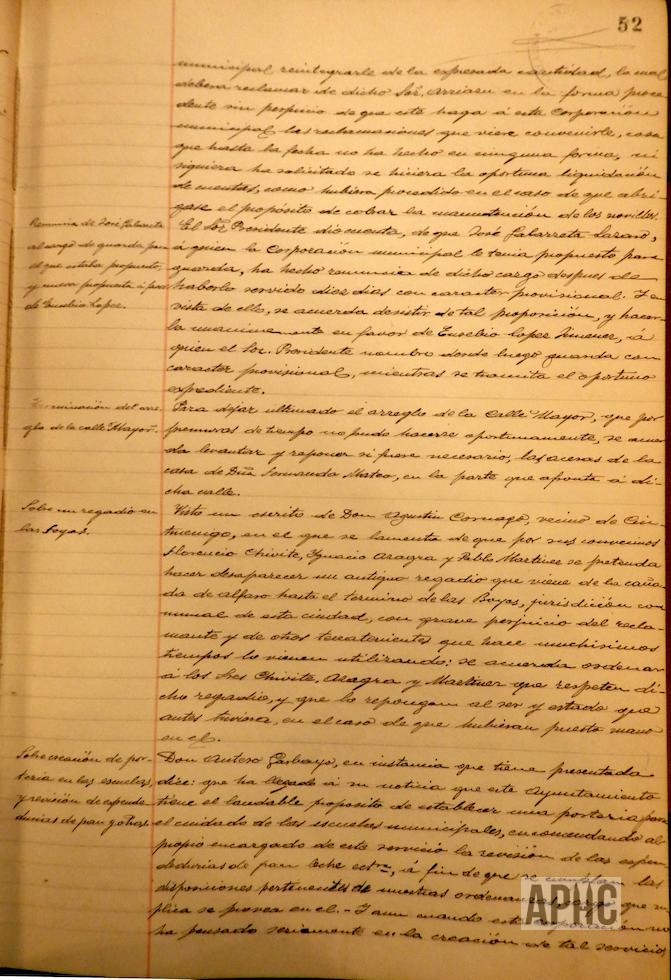 52
municipal reintegrarle de la expresada cantidad, la cual
debera reclamar de dicho Sor. Arriazu en la forma proce
dente sin perjuicio de que este haga á esta Corporación
municipal las reclamaciones que viere convenirle, cosa
que hasta la fecha no ha hecho en ninguna forma, ni
siquiera ha solicitado se hiciera la oportuna liquidación
de cuentas, como hubiera procedido en el caso de que abri
gase el propósito de cobrar la manutención de los novillos.
Renuncia de José Labarreta
al cargo de guarda para
el que estaba propuesto,
y nueva propuesta á favor
de Eusebio Lopez.
El Sor. Presidente dio cuenta, de que José Labarreta Lozano,
á quien la Corporación municipal le tenia propuesto para
guarda, ha hecho renuncia de dicho cargo despues de
haberlo servido diez dias con caracter provisional. Y en
vista de ello, se acuerda desistir de tal proposición, y hacer
la unanimemente en favor de Eusebio Lopez Jimenez, á
quien el Sor. Presidente nombro desde luego guarda con
caracter provisional, mientras se tramita el oportuno
expediente.
Terminación del arre
glo de la calle Mayor.
Para dejar ultimado el arreglo de la Calle Mayor, que por
premuras de tiempo no pudo hacerse oportunamente, se acuer
da levantar y reponer si fuere necesario, las aceras de la
casa de Dña Fernanda Mateo, en la parte que afronta á di
cha calle.
Sobre un regadio en
las Royas.
Visto un escrito de Don Agustin Cornago, vecino de Cin
truenigo, en el que se lamenta de que por sus convecinos
Florencio Chivite, Ignacio Aragra y Pablo Martinez se pretenda
hacer desaparecer un antiguo regadio que viene de la caña
da de Alfaro hasta el termino de las Royas, jurisdicción co
munal de esta ciudad, con grave perjuicio del recla
mante y de otros terratenientes que hace muchisimos
tiempos lo vienen utilizando: se acuerda ordenar
á los Sres Chivite, Aragra y Martinez que respeten di
cho regadio, y que lo repongan al ser y estado que
antes tuviera, en el caso de que hubieran puesto mano
en el.
Sobre creación de por
teria en las escuelas,
y revisión de expende
durias de pan y otros.
Don Antero Garbayo, en instancia que tiene presentada
dice: que ha llegado á su noticia que este Ayuntamiento
tiene el laudable proposito de establecer una porteria para
el cuidado de las escuelas municipales, encomendando al
propio encargado de este servicio la revisión de las expen
dedurias de pan leche ectra, á fin de que se cumplan las
disposiciones pertinentes de nuestras ordenanzas, cargo que su
plica se provea en el.- Y aun cuando esta corporación no
ha pensado seriamente en la creación de tal servicio
APHC